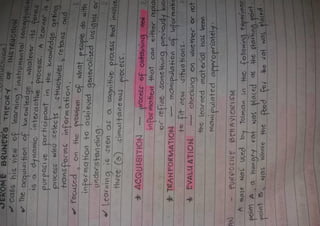 JEROME BRUNER'S THEORY OF INSTRUCTION
✓ Calls his view of learning, instrumental conceptualism
✓ The acquisition of knowledge, whatever its form,
is a dynamic, interactive process. A learner is
purposive participant in the knowledge getting
process who selects, structures, retains and
transforms information.
✓ Focused on the problem of what people do with
information to achieved generalized insights or
understanding.
✓ Learning is seen as a cognitive process that involves
three (3) simultaneous process.
* ACQUISITION - process of obtaining new
information that can either
or refine something previously known
* TRANFORMATION - manipulation of information
to fit new situations.
* EVALUATION - checking on whether or not
the learned material has been
manipulated appropriately.
- PURPOSIVE BEHAVIORISM
A maze was used by Tolman in the following experiment
point A, a hungry rat was placed at the
point B, was where the food